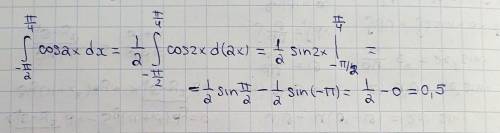 ∫_{-π/2}^{π/4} cos2x dx = 1/2 ∫_{-π/2}^{π/4} cos2x d(2x) = 1/2 sin2x |_{-π/2}^{π/4} =
= 1/2 sin π/2 - 1/2 sin(-π) = 1/2 - 0 = 0,5